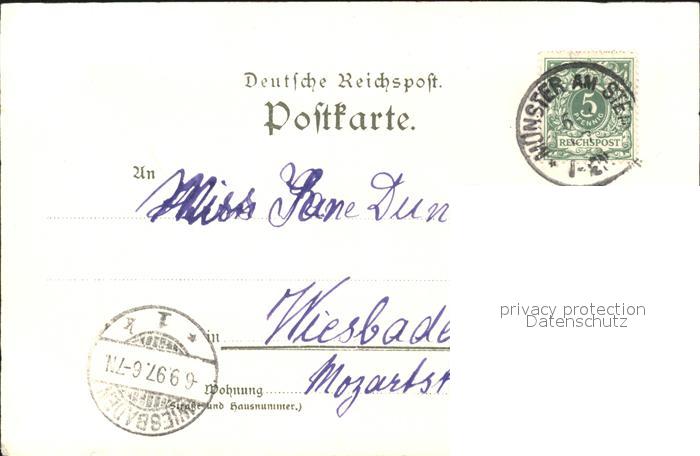 Deutsche Reichspost.
Postkarte.
MÜNSTER AM STE
5
PFENNIG
REICHSPOST
An
Miss Jane Dun
privacy protection
Datenschutz
in Wiesbade
Wohnung Mozartst
(Straße und Hausnummer.)
* 1 k
6.9.97.6-7N.
WIESBADEN